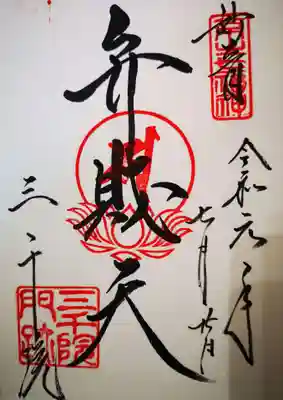 弁財天
令和元年
七月廿日
三千院
三千院
門跡